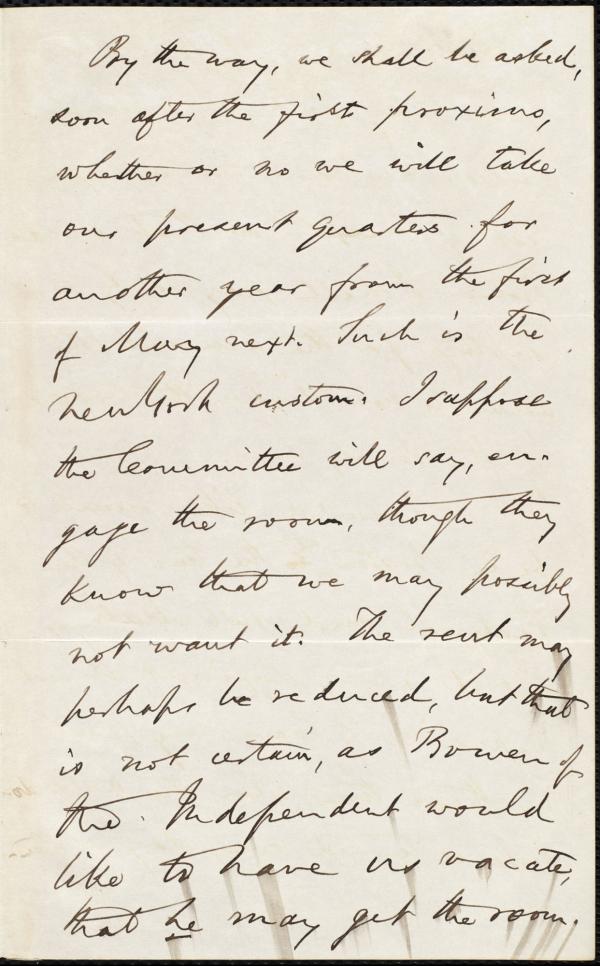 By the way, we shall be asked,
soon after the first proximo,
whether or no we will take
our present quarters for
another year from the first
of May next. Such is the
New York custom. I suppose
the Committee will say, en-
gage the room, though they
know that we may possibly
not want it. The rent may
perhaps be reduced, but that
is not certain, as Bowen of
the Independent would
like to have us vacate,
that he may get the room.